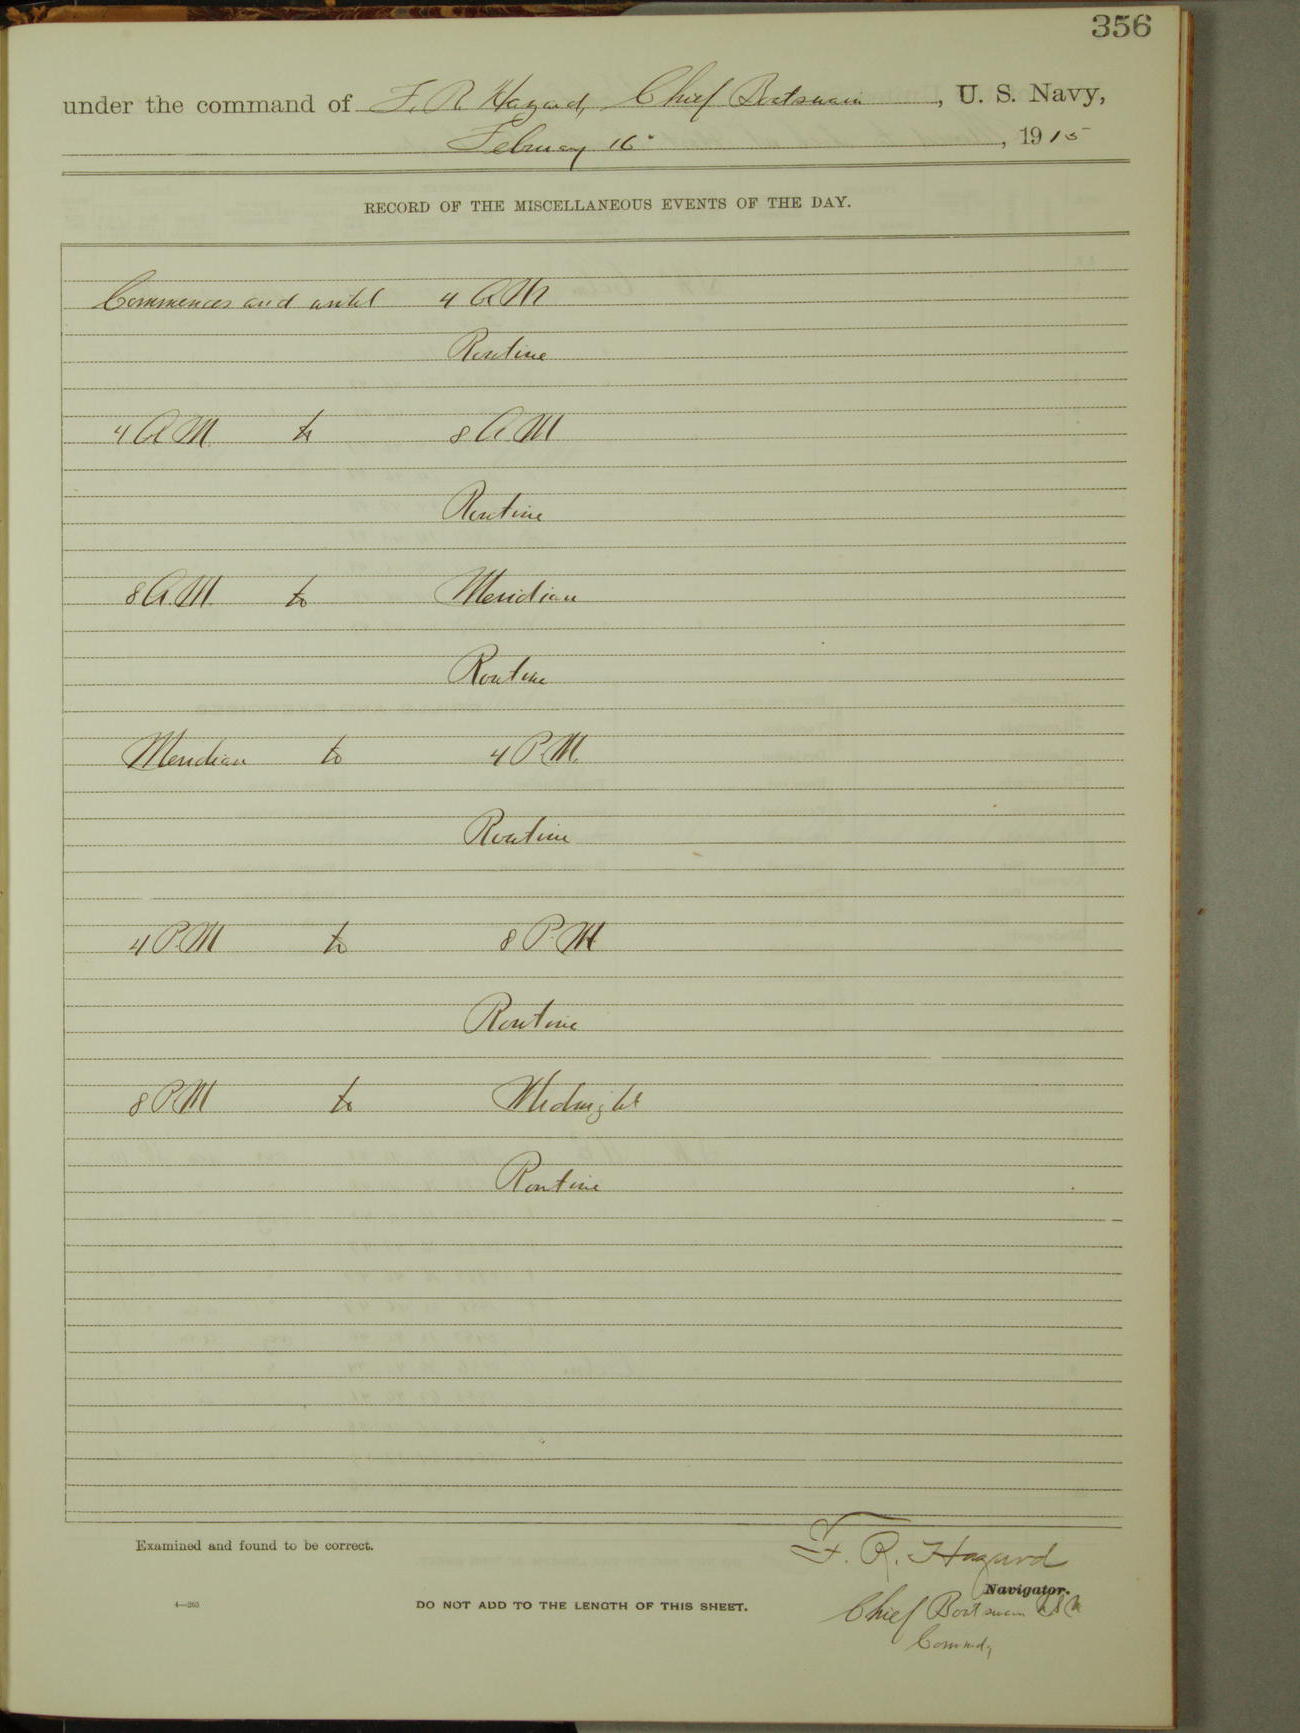 356
under the command of F. R. Hazard, Chief Boatswain, U. S. Navy,
February 16", 1915
RECORD OF THE MISCELLANEOUS EVENTS OF THE DAY.
Commences and until 4 A M
Routine
4 A M to 8 A M
Routine
8 A.M. to Meridian
Routine
Meridian to 4 P.M.
Routine
4 P.M to 8 P.M
Routine
8 P.M to Midnight
Routine
Examined and found to be correct.
F. R. Hazard
Navigator.
4—265
DO NOT ADD TO THE LENGTH OF THIS SHEET.
Chief Boatswain U S N
Commdg